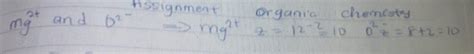 Assignment organic chemistry
mg²⁺ and O²⁻ ⟹ mg²⁺ z = 12⁻² = 10 O²⁻ z = 8+2 = 10